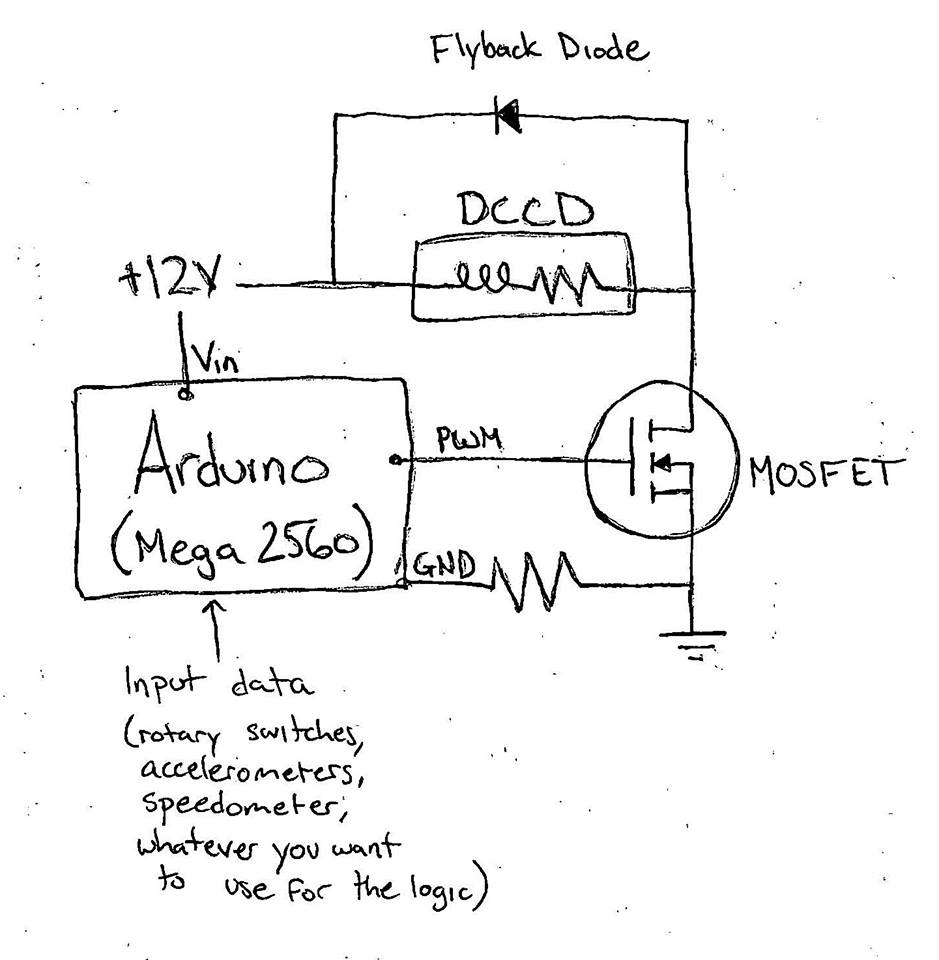 Flyback Diode
DCCD
+12V
Vin
Arduino
(Mega 2560)
PWM
MOSFET
GND
Input data
(rotary switches,
accelerometers,
speedometer,
whatever you want
to use for the logic)